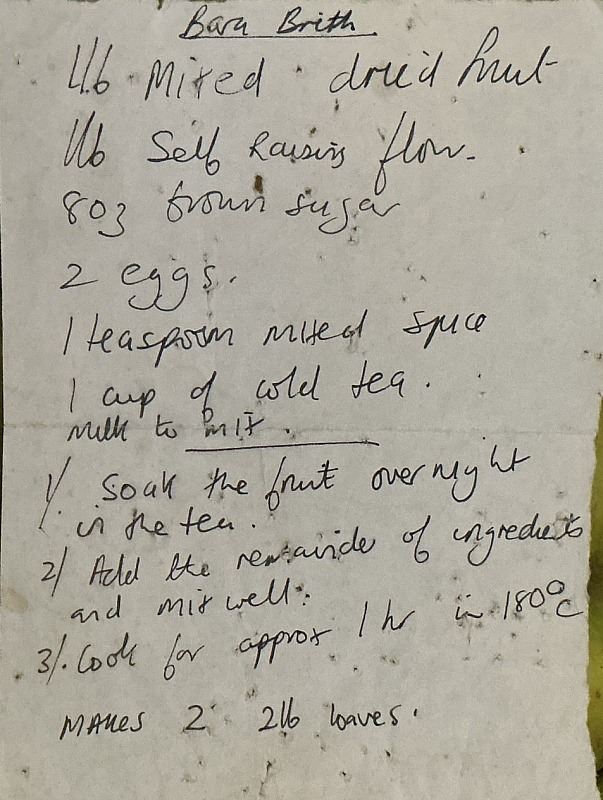 Bara Brith
1lb Mixed dried fruit
1lb Self Raising flour.
8oz brown sugar
2 eggs.
1 teaspoon mixed spice
1 cup of cold tea.
Milk to mix.
1/. Soak the fruit overnight
in the tea.
2/ Add the remainder of ingredients
and mix well.
3/. Cook for approx 1 hr in 180°C
MAKES 2 2lb loaves.